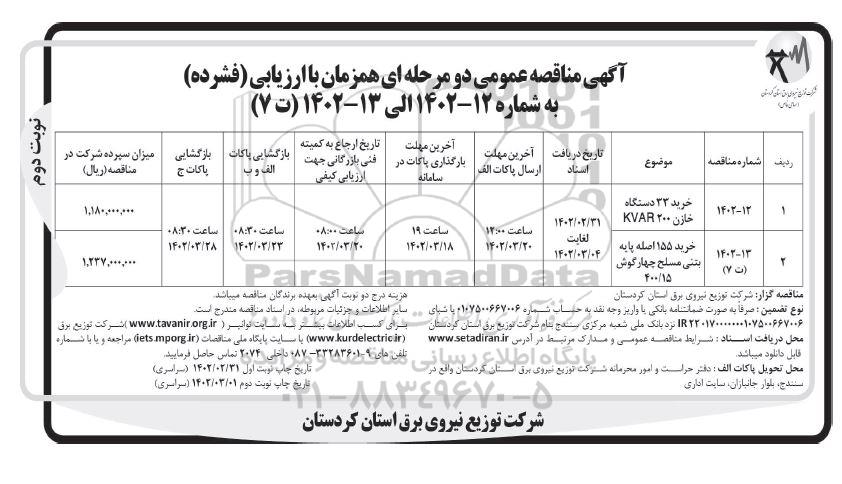 آگهی مناقصه عمومی دو مرحله ای همزمان با ارزیابی (فشرده)
به شماره ۱۲-۱۴۰۲ الی ۱۳-۱۴۰۲ (ت ۷)
شرکت توزیع نیروی برق استان کردستان
(سهامی خاص)
نوبت دوم
ردیف
شماره مناقصه
موضوع
تاریخ دریافت اسناد
آخرین مهلت ارسال پاکات الف
آخرین مهلت بارگذاری پاکات در سامانه
تاریخ ارجاع به کمیته فنی بازرگانی جهت ارزیابی کیفی
بازگشایی پاکات الف و ب
بازگشایی پاکات ج
میزان سپرده شرکت در مناقصه (ریال)
۱
۱۴۰۲-۱۲
خرید ۳۳ دستگاه خازن ۲۰۰ KVAR
۱۴۰۲/۰۲/۳۱ لغایت ۱۴۰۲/۰۳/۰۴
ساعت ۱۲:۰۰ ۱۴۰۲/۰۳/۲۰
ساعت ۱۹ ۱۴۰۲/۰۳/۱۸
ساعت ۰۸:۰۰ ۱۴۰۲/۰۳/۲۰
ساعت ۰۸:۳۰ ۱۴۰۲/۰۳/۲۳
ساعت ۰۸:۳۰ ۱۴۰۲/۰۳/۲۸
۱,۱۸۰,۰۰۰,۰۰۰
۲
۱۴۰۲-۱۳ (ت ۷)
خرید ۱۵۵ اصله پایه بتنی مسلح چهارگوش ۴۰۰/۱۵
۱,۲۳۷,۰۰۰,۰۰۰
مناقصه گزار: شرکت توزیع نیروی برق استان کردستان
نوع تضمین : صرفاً به صورت ضمانتنامه بانکی یا واریز وجه نقد به حساب شماره ۰۱۰۷۵۰۰۶۶۷۰۰۶ یا شبای
IR ۲۲۰۱۷۰۰۰۰۰۰۰۱۰۷۵۰۰۶۶۷۰۰۶ نزد بانک ملی شعبه مرکزی سنندج بنام شرکت توزیع برق استان کردستان
محل دریافت اسناد : شرایط مناقصه عمومی و مدارک مرتبط در آدرس www.setadiran.ir
قابل دانلود میباشد.
محل تحویل پاکات الف : دفتر حراست و امور محرمانه شرکت توزیع نیروی برق استان کردستان واقع در
سنندج، بلوار جانبازان، سایت اداری
هزینه درج دو نوبت آگهی بعهده برندگان مناقصه میباشد.
سایر اطلاعات و جزئیات مربوطه، در اسناد مناقصه مندرج است.
برای کسب اطلاعات بیشتر به سایت توانیر ( www.tavanir.org.ir )شرکت توزیع برق
(www.kurdelectric.ir) یا سایت پایگاه ملی مناقصات (iets.mporg.ir) مراجعه و یا با شماره
تلفن های ۹-۳۳۲۸۳۶۰۱-۰۸۷ داخلی ۲۰۷۴ تماس حاصل فرمایید.
تاریخ چاپ نوبت اول ۱۴۰۲/۰۲/۳۱ (سراسری)
تاریخ چاپ نوبت دوم ۱۴۰۲/۰۳/۰۱ (سراسری)
شرکت توزیع نیروی برق استان کردستان
ParsNamadData
پایگاه اطلاع رسانی مناقصه و مزایده
۰۲۱-۸۸۳۴۹۶۷۰-۵